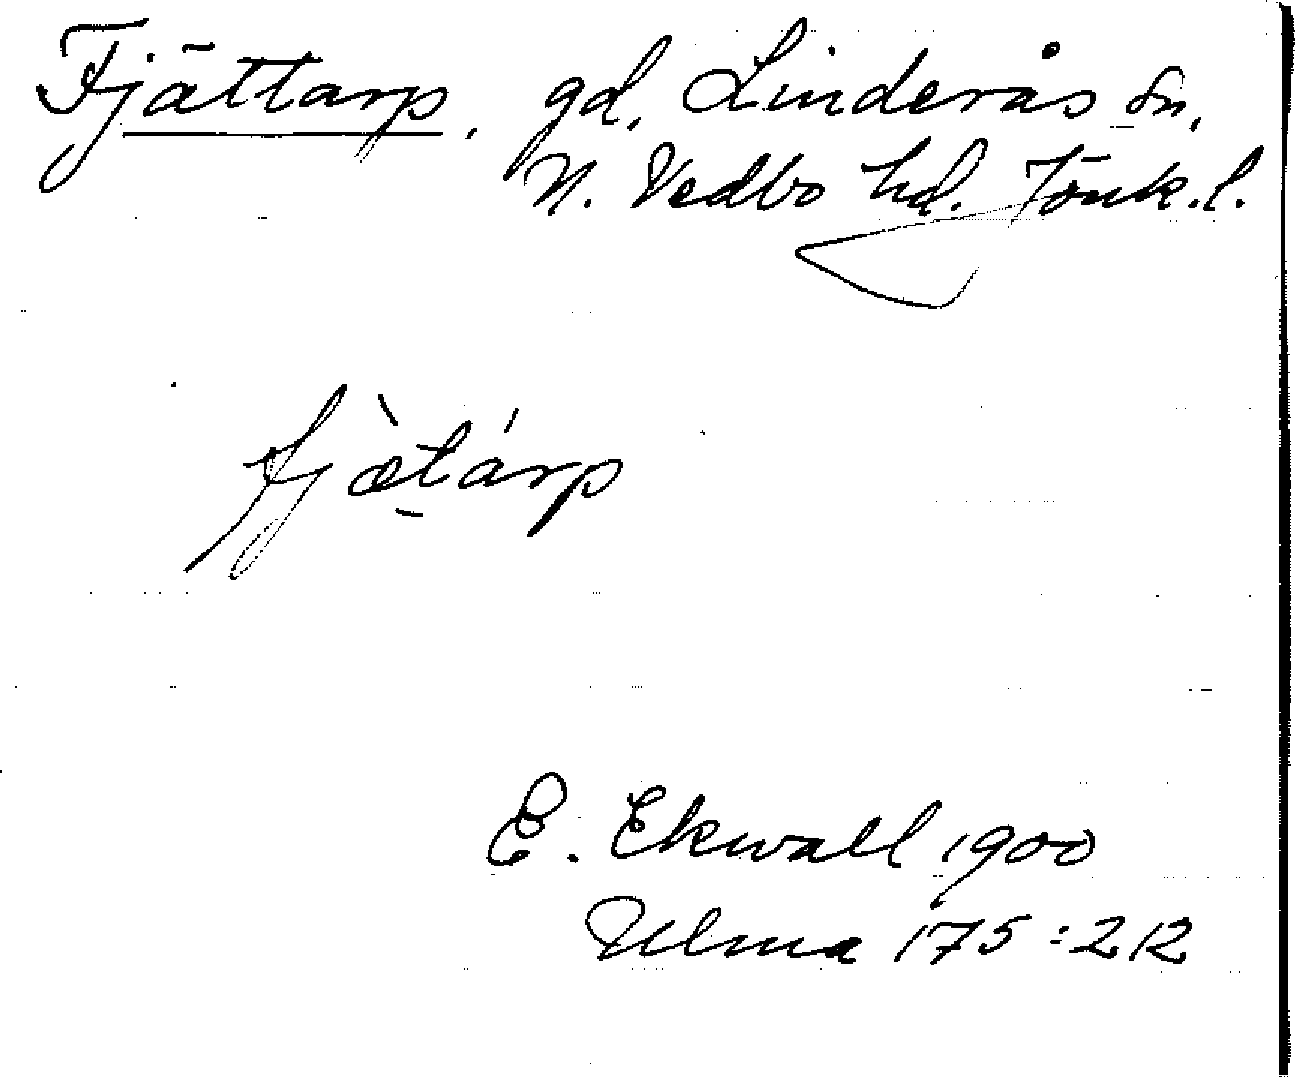 Fjättarp, gd, Linderås sn,
N. Vedbo hd. Jönk.l.
fjæ̀t̠árp
E. Ekwall 1900
Ulma 175:212